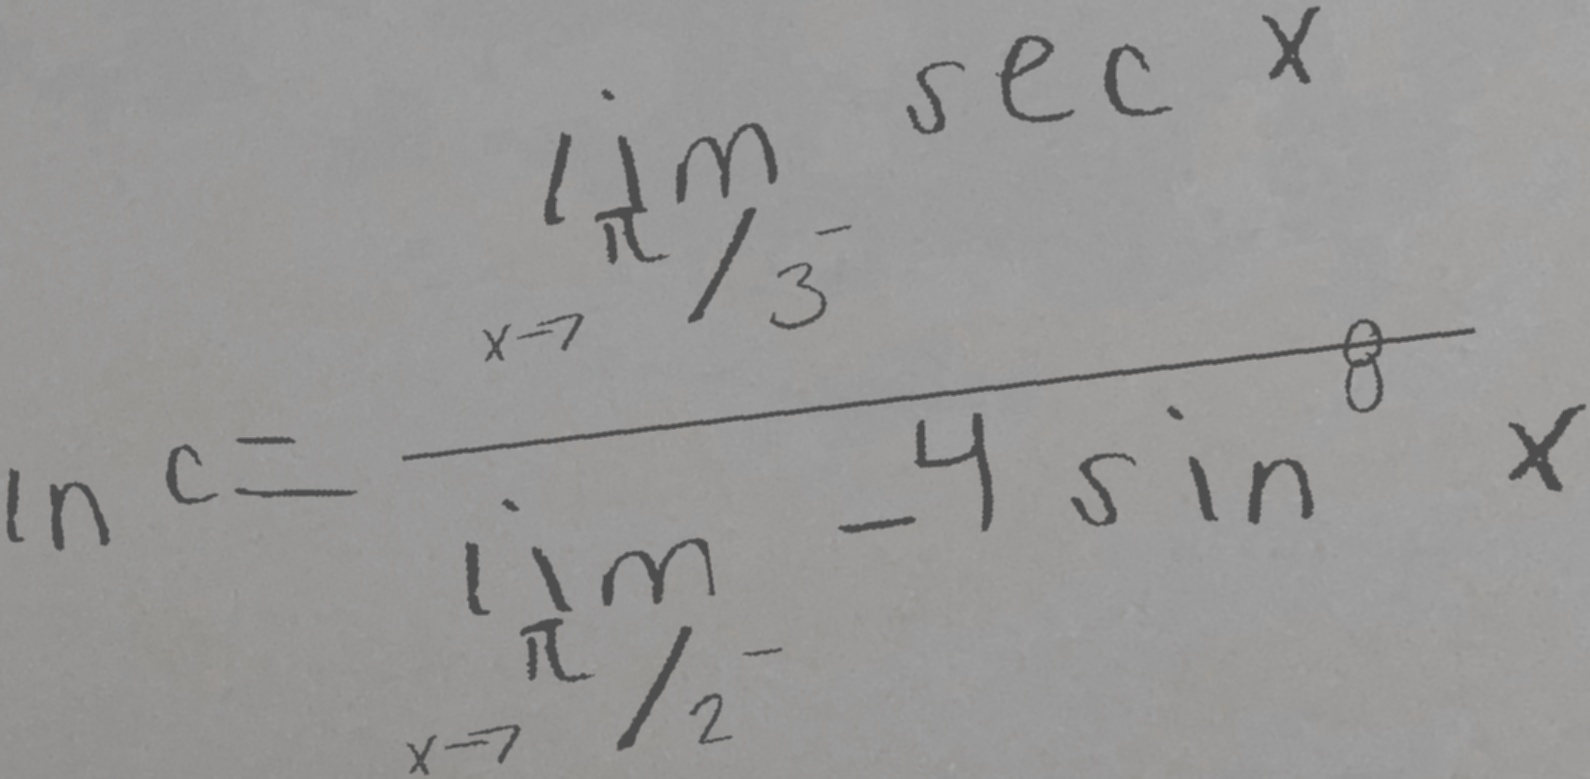 ln c = \frac{\lim_{x \to \pi/3^-} \sec x}{\lim_{x \to \pi/2^-} -4 \sin^8 x}